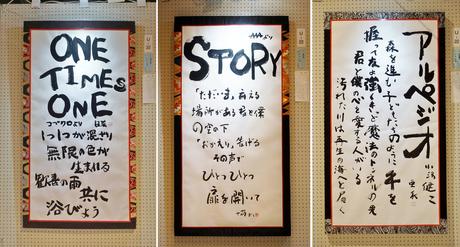 ONE
TIMES
ONE
コブクロより
一つ一つが混ざり
無限の色が
生まれる
歓喜の雨 共に
浴びよう
AAAより
STORY
「ただいま」言える
場所がある 君と僕
の空の下
「おかえり」告げる
その声で
ひとつひとつ
扉を開いて
アルペジオ
小沢健二
森を進む 子どもたちのように 手を
握って友よ強く きっと魔法のトンネルの先
君と僕の心を愛する人がいる
汚れた川は再生の海へと届く